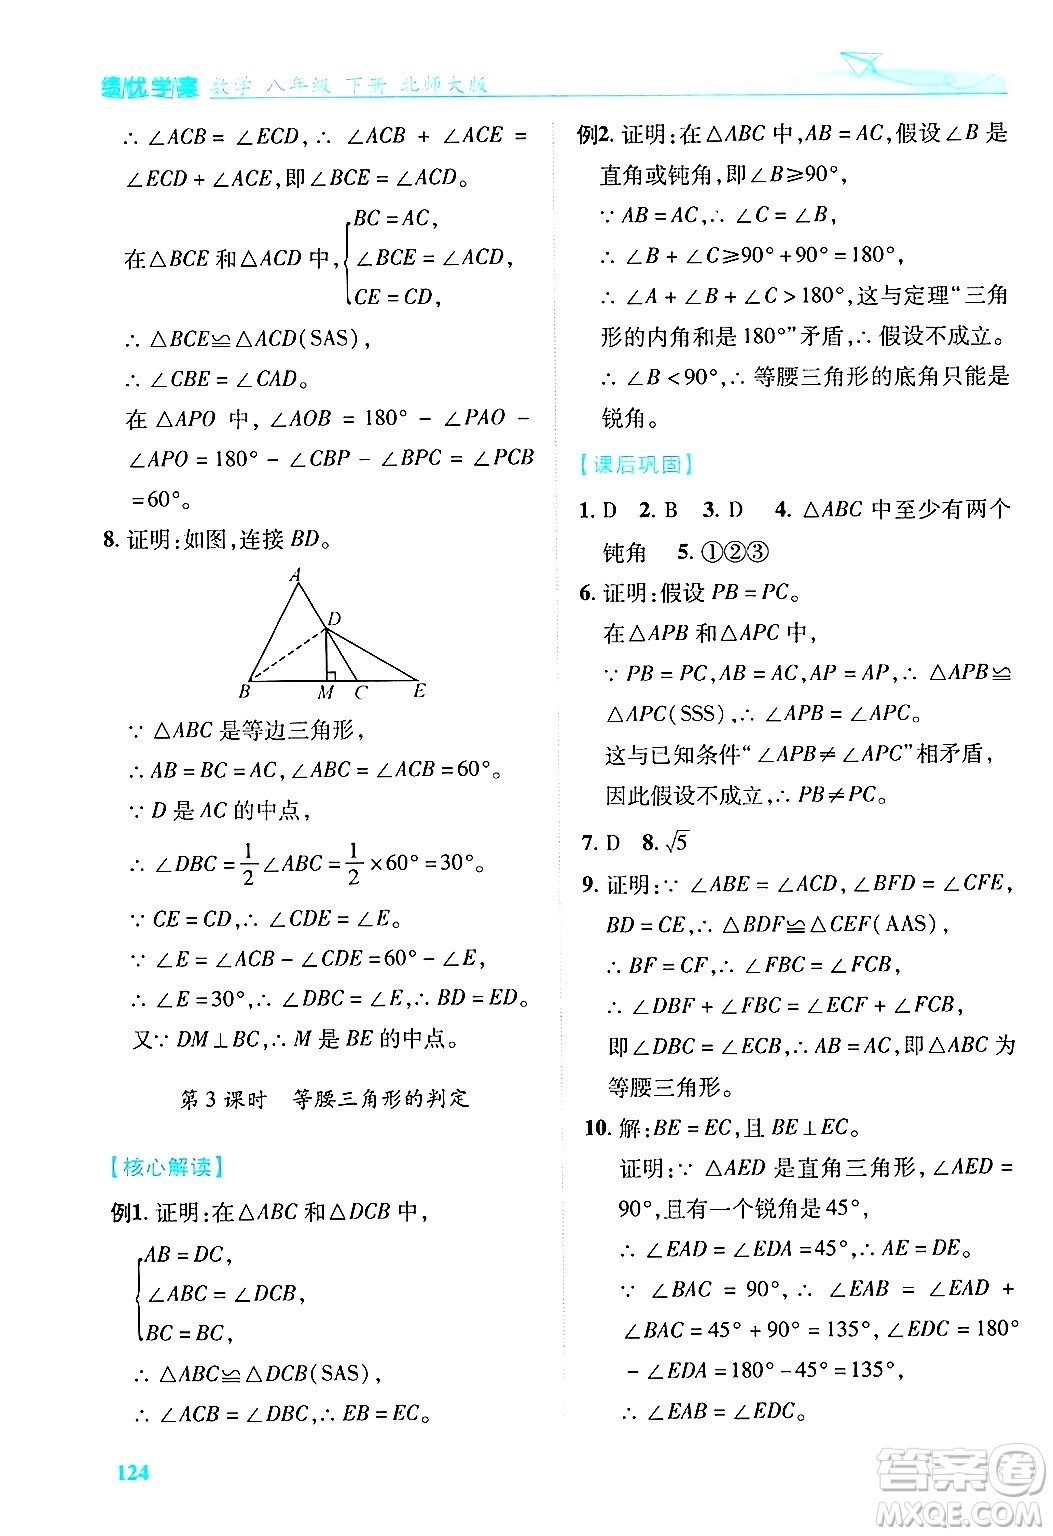 绩优学案 数学 八年级 下册 北师大版
∴ ∠ACB = ∠ECD, ∴ ∠ACB + ∠ACE =
∠ECD + ∠ACE,即∠BCE = ∠ACD。
在△BCE 和△ACD 中,
BC = AC,
∠BCE = ∠ACD,
CE = CD,
∴ △BCE≌△ACD(SAS),
∴ ∠CBE = ∠CAD。
在 △APO 中, ∠AOB = 180° − ∠PAO −
∠APO = 180° − ∠CBP − ∠BPC = ∠PCB
=60°。
8. 证明:如图,连接 BD。
A
D
B M C E
∵ △ABC 是等边三角形,
∴ AB = BC = AC, ∠ABC = ∠ACB = 60°。
∵ D 是 AC 的中点,
∴ ∠DBC = 1/2 ∠ABC = 1/2 × 60° = 30°。
∵ CE = CD,∴ ∠CDE = ∠E。
∵ ∠E = ∠ACB − ∠CDE = 60° − ∠E,
∴ ∠E = 30°,∴ ∠DBC = ∠E,∴ BD = ED。
又∵ DM⊥BC,∴ M 是 BE 的中点。
第 3 课时 等腰三角形的判定
【核心解读】
例1. 证明:在△ABC 和△DCB 中,
AB = DC,
∠ABC = ∠DCB,
BC = BC,
∴ △ABC≌△DCB(SAS),
∴ ∠ACB = ∠DBC,∴ EB = EC。
124
例2. 证明:在△ABC 中,AB = AC,假设∠B 是
直角或钝角,即∠B≥90°,
∵ AB = AC,∴ ∠C = ∠B,
∴ ∠B + ∠C≥90° + 90° = 180°,
∴ ∠A + ∠B + ∠C > 180°,这与定理“三角
形的内角和是 180°”矛盾,∴ 假设不成立。
∴ ∠B < 90°,∴ 等腰三角形的底角只能是
锐角。
【课后巩固】
1. D 2. B 3. D 4. △ABC 中至少有两个
钝角 5. ①②③
6. 证明:假设 PB = PC。
在△APB 和△APC 中,
∵ PB = PC,AB = AC,AP = AP,∴ △APB≌
△APC(SSS),∴ ∠APB = ∠APC。
这与已知条件“∠APB≠∠APC”相矛盾,
因此假设不成立,∴ PB≠PC。
7. D 8. √5
9. 证明:∵ ∠ABE = ∠ACD,∠BFD = ∠CFE,
BD = CE,∴ △BDF≌△CEF(AAS),
∴ BF = CF,∴ ∠FBC = ∠FCB,
∴ ∠DBF + ∠FBC = ∠ECF + ∠FCB,
即∠DBC = ∠ECB,∴ AB = AC,即△ABC 为
等腰三角形。
10. 解:BE = EC,且 BE⊥EC。
证明:∵ △AED 是直角三角形,∠AED =
90°,且有一个锐角是 45°,
∴ ∠EAD = ∠EDA = 45°,∴ AE = DE。
∵ ∠BAC = 90°,∴ ∠EAB = ∠EAD +
∠BAC = 45° + 90° = 135°,∠EDC = 180°
− ∠EDA = 180° − 45° = 135°,
∴ ∠EAB = ∠EDC。
答案卷
MXQE.COM